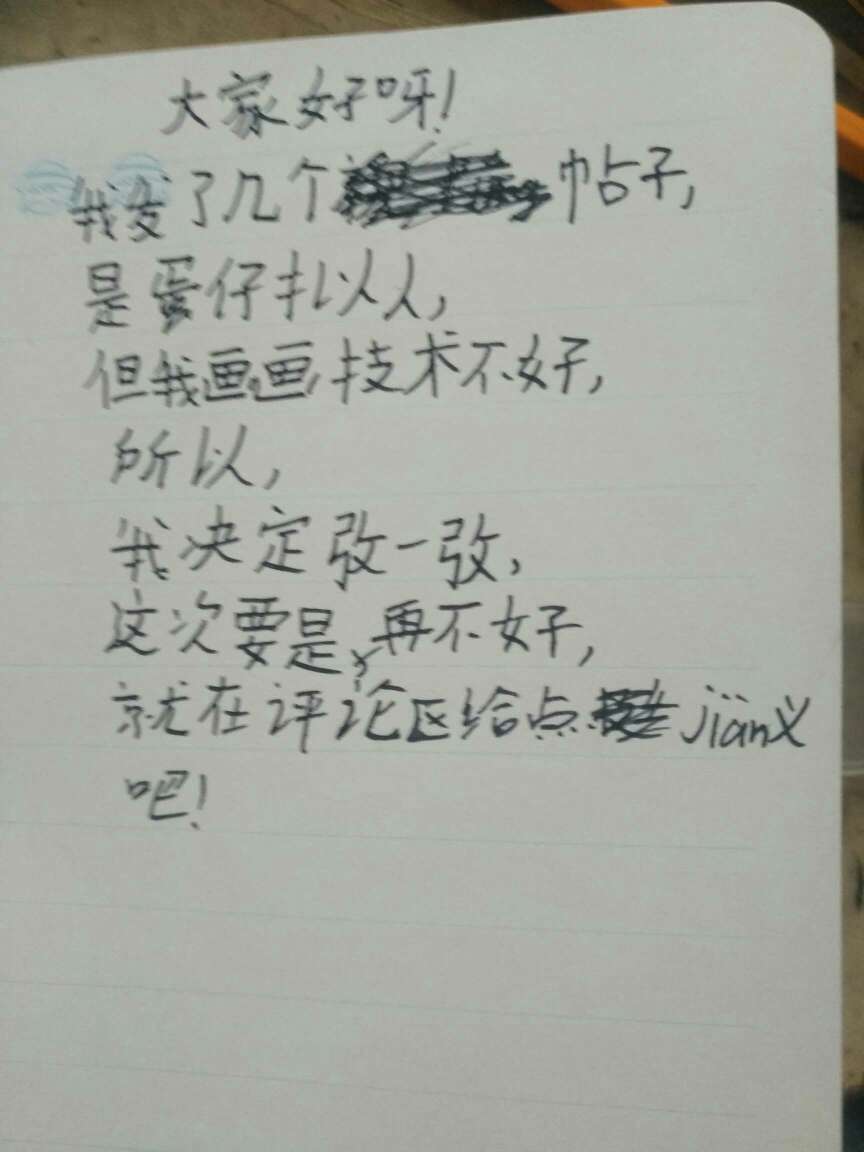 大家好呀!
我发了几个帖子,
是蛋仔扎以人,
但我画画技术不好,
所以,
我决定改一改,
这次要是再不好,
就在评论区给点jian义
吧!